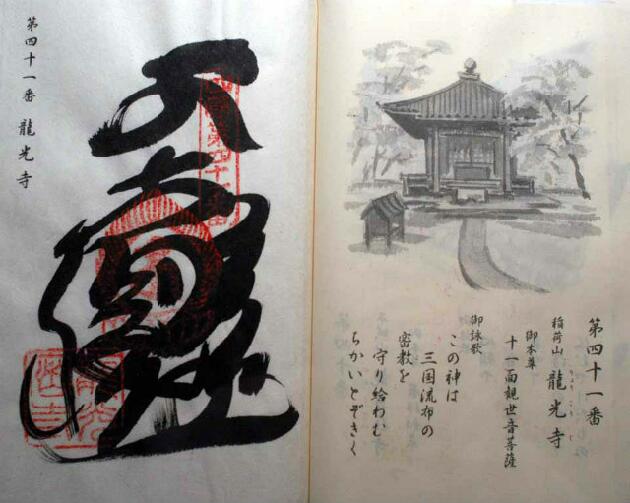 第四十一番
稲荷山 龍光寺
りゅうこうじ
御本尊
十一面観世音菩薩
御詠歌
この神は
三国流布の
密教を
守り給わむ
ちかいとぞきく
第四十一番 龍光寺
四国第四十一番